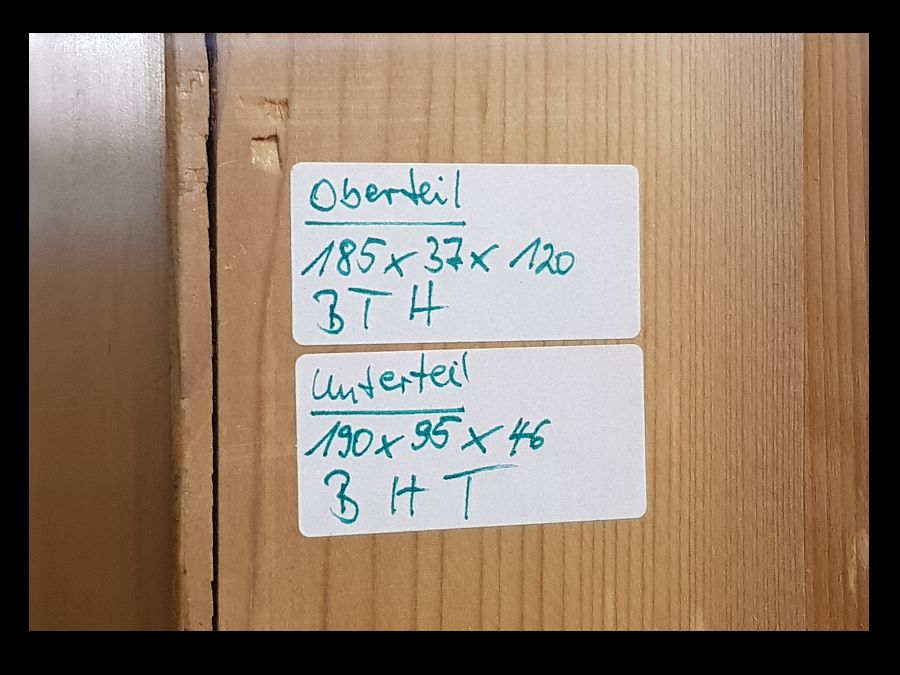 Oberteil
185 x 37 x 120
B T H
Unterteil
190 x 95 x 46
B H T